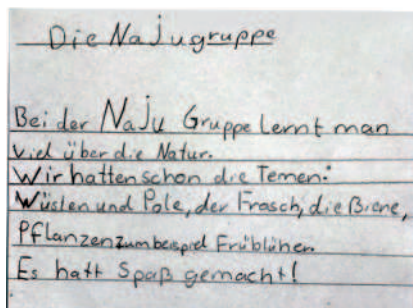 Die Najugruppe
Bei der Naju Gruppe lernt man
viel über die Natur.
Wir hatten schon die Temen:
Wüsten und Pole, der Frosch, die Biene,
Pflanzen zum beispiel Frübluher.
Es hatt Spaß gemacht!